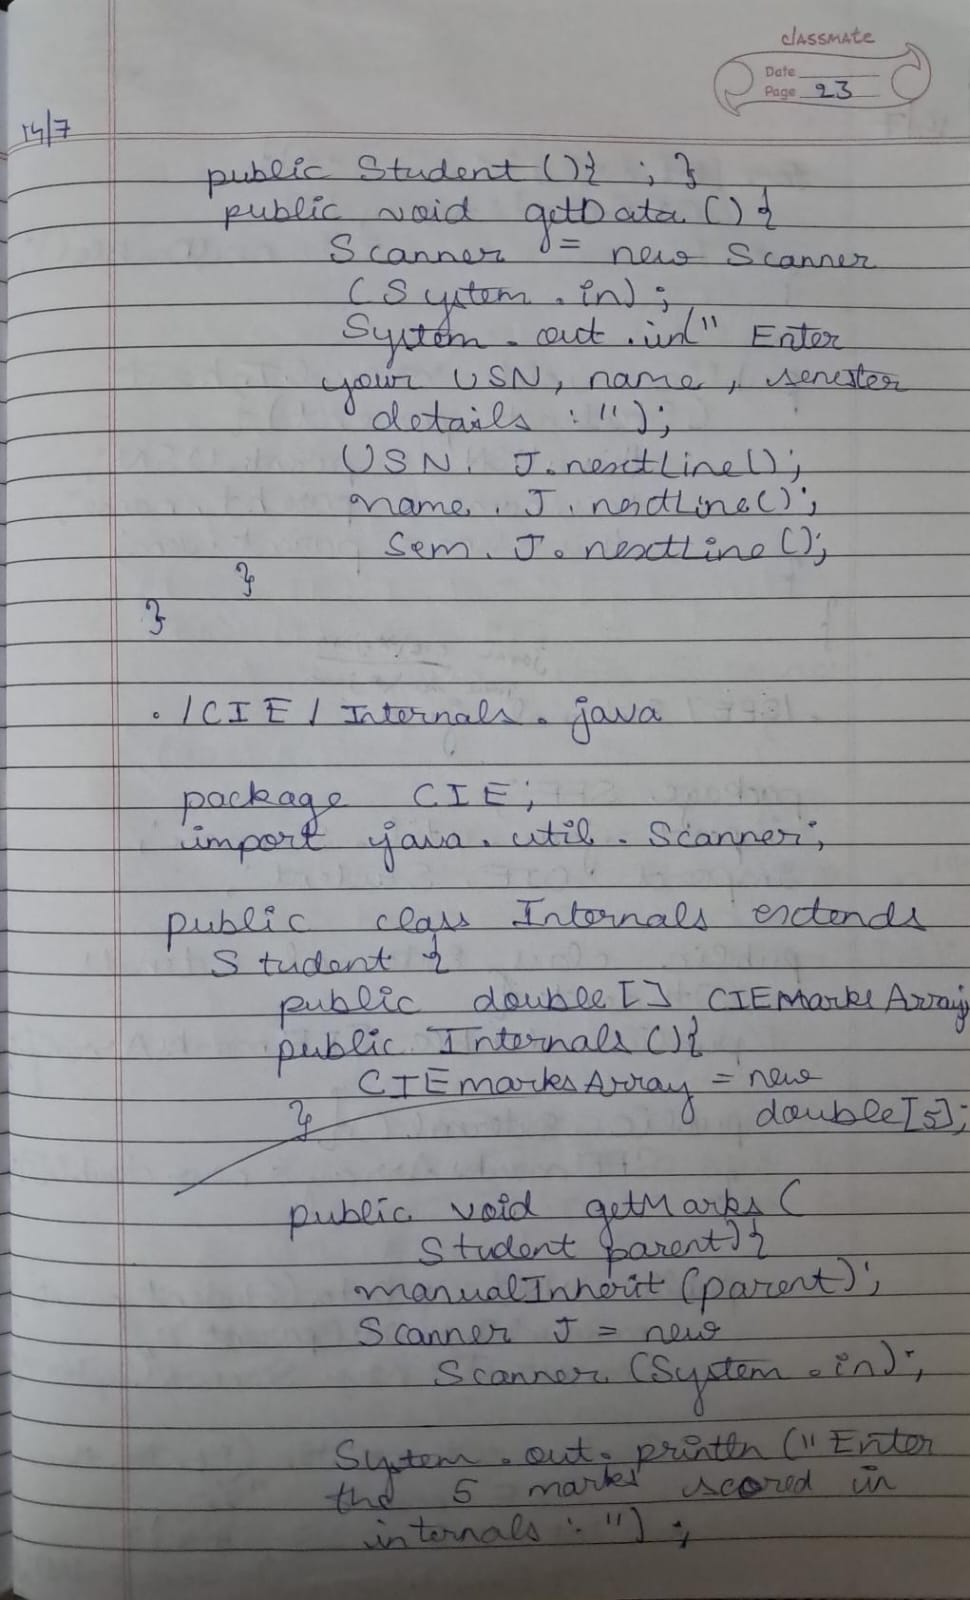 classmate
Date
Page 23
14/7
public Student (){ ; }
public void getData () {
Scanner = new Scanner
(System . in) ;
System . out . in(" Enter
your USN, name , semester
details : ") ;
USN. J. nextLine();
name . J . nextLine() ;
Sem . J. nextLine ();
}
}
. / CIE / Internals . java
package CIE ;
import java . util . Scanner ;
public class Internals extends
Student {
public double [] CIEMarksArray
public Internals (){
CIEmarksArray = new
}
double [5];
public void getMarks (
Student parent) {
manualInherit (parent) ;
Scanner J = new
Scanner (System . in) ;
System . out . println (" Enter
the 5 marks scored in
internals : ") ;